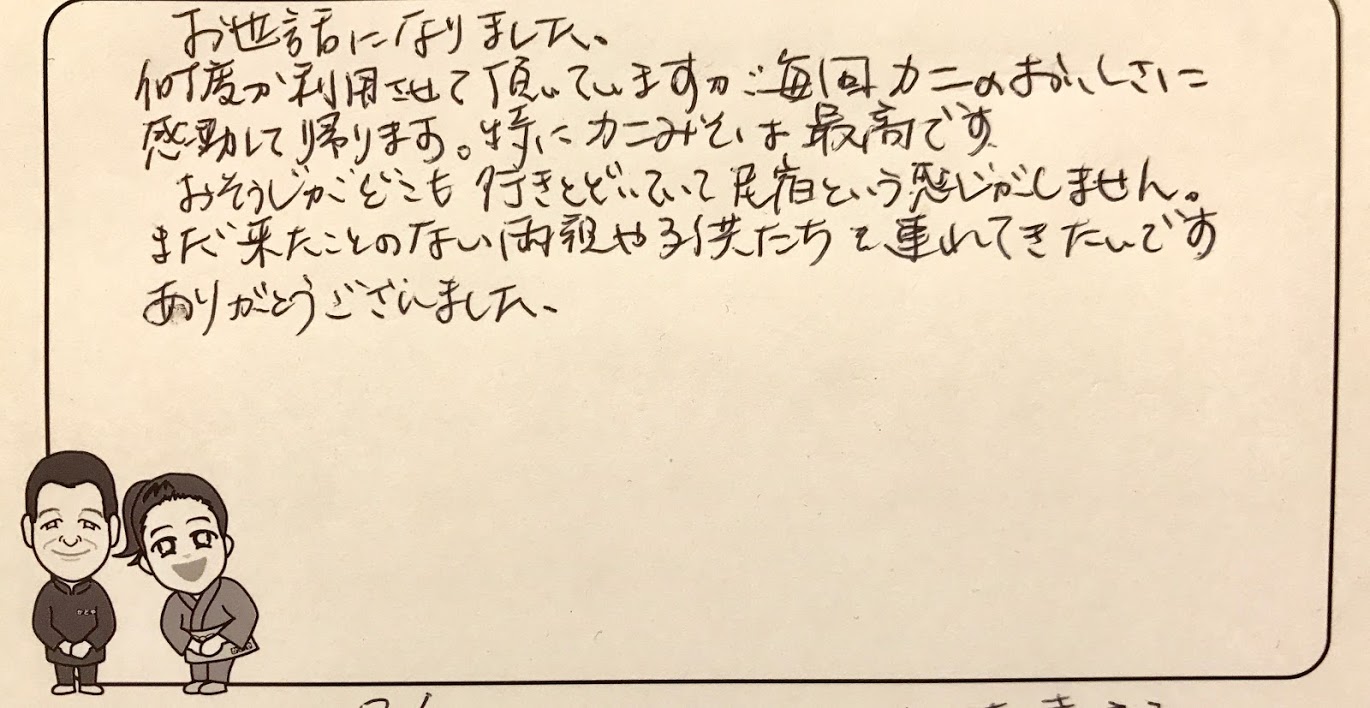 お世話になりました、
何度か利用させて頂いていますが、毎回カニのおいしさに
感動して帰ります。特にカニみそは最高です
おそうじがどこも行きとどいていて民宿という感じがしません。
まだ来たことのない両親や子供たちを連れてきたいです
ありがとうございました、
かどや